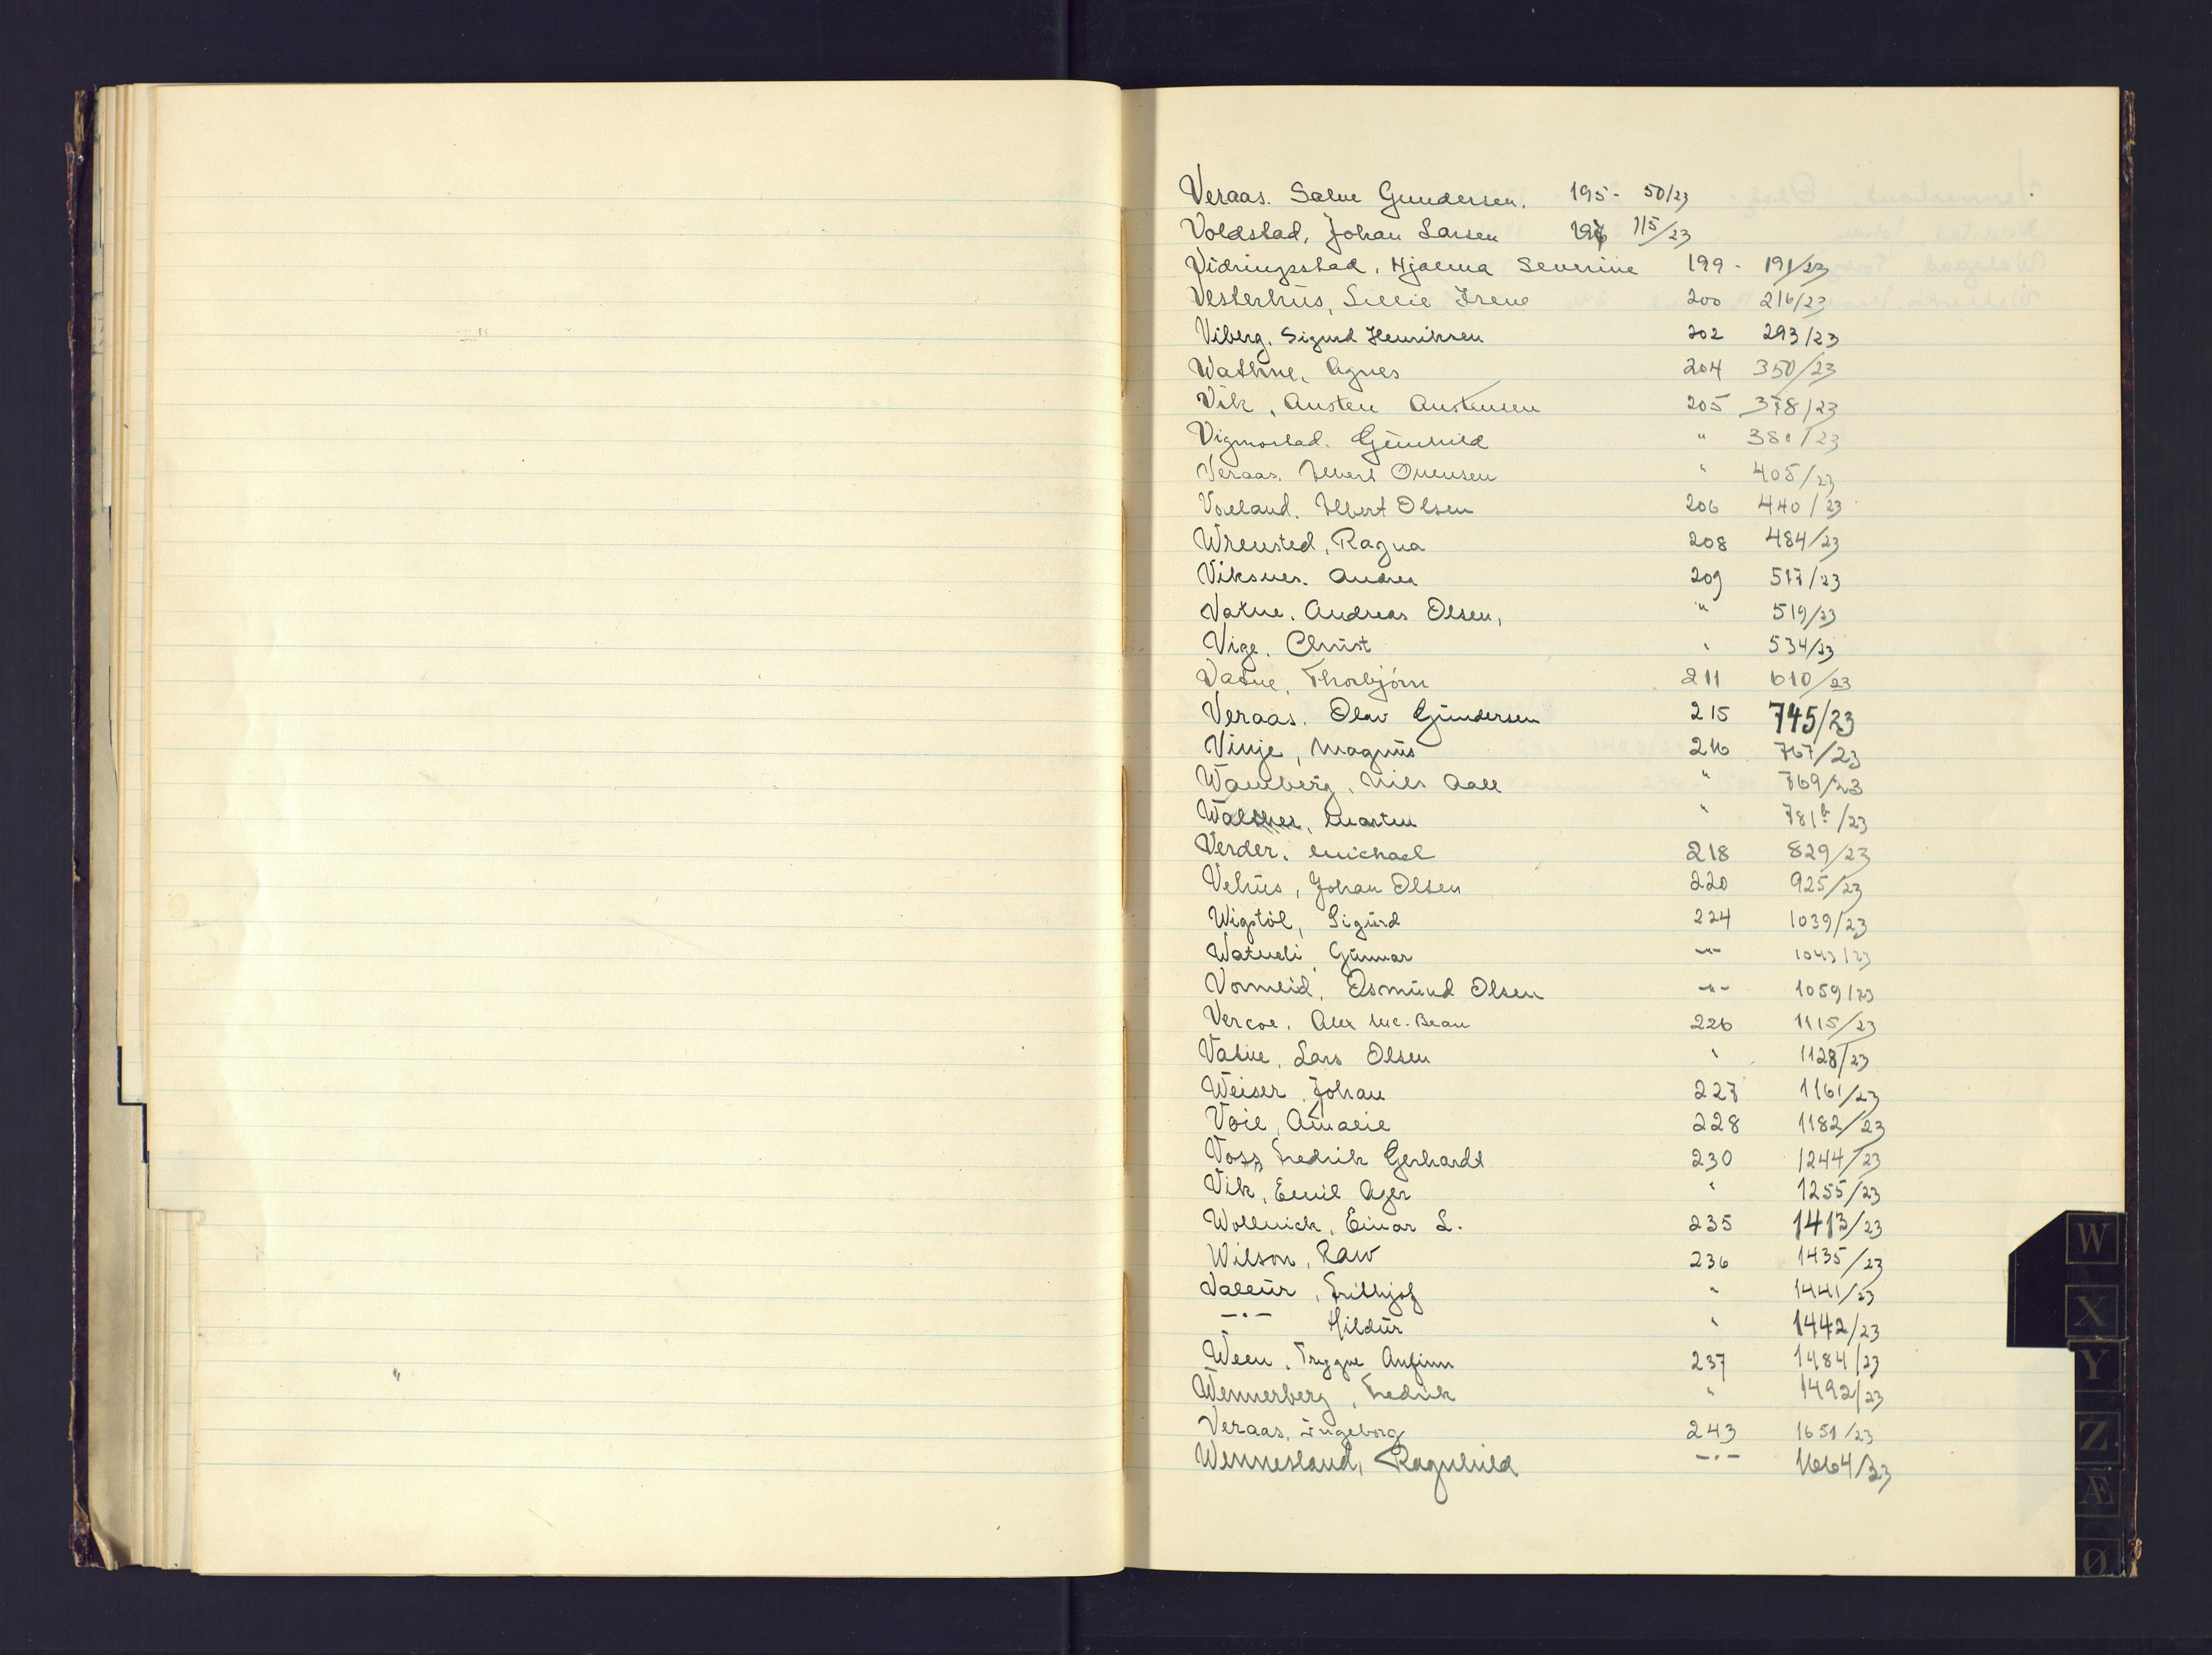 Veraas. Salve Gundersen. 195- 50/23
Voldstad, Johan Larsen 196 115/23
Vidringsstad, Hjalma Severine 199- 191/23
Vesterhus, Lillie Irene 200 216/23
Viberg. Sigurd Henriksen 202 293/23
Wathne, Agnes 204 350/23
Vik, Austen Austensen 205 378/23
Vigmostad. Gunhild " 381/23
Veraas. Omensen " 405/23
Voieland. Olsen 206 440/23
Wrensted, Ragna 208 484/23
Viksnes. Andrea 209 517/23
Vatne. Andreas Olsen, " 519/23
Vige. Christ " 534/23
Vatne, Thorbjörn 211 610/23
Veraas. Olav Gundersen 215 745/23
Vinje, Magnus 216 767/23
Wamberg, Nils Aall " 769/23
Walther, Martin " 781b/23
Verder. Michael 218 829/23
Vehus, Johan Olsen 220 925/23
Wigstöl, Sigurd 224 1039/23
Watneli Gunnar -"- 1043/23
Vormeid, Osmund Olsen -"- 1059/23
Vercoe. Alex Mc. Bean 226 1115/23
Vatne, Lars Olsen " 1128/23
Weiser, Johan 227 1161/23
Voie, Amalie 228 1182/23
Voss, Fredrik Gerhardt 230 1244/23
Vik, Emil Ager " 1255/23
Wollnick, Einar L. 235 1413/23
Wilson, Raw 236 1435/23
Valeur, Frithjof " 1441/23
-"- Hildur " 1442/23
Ween. Trygve Anfinn 237 1484/23
Wennerberg, Fredrik " 1492/23
Veraas, Ingeborg 243 1651/23
Wennesland, Ragnhild -"- 1664/23
W
X
Y
Z
Æ
Ø